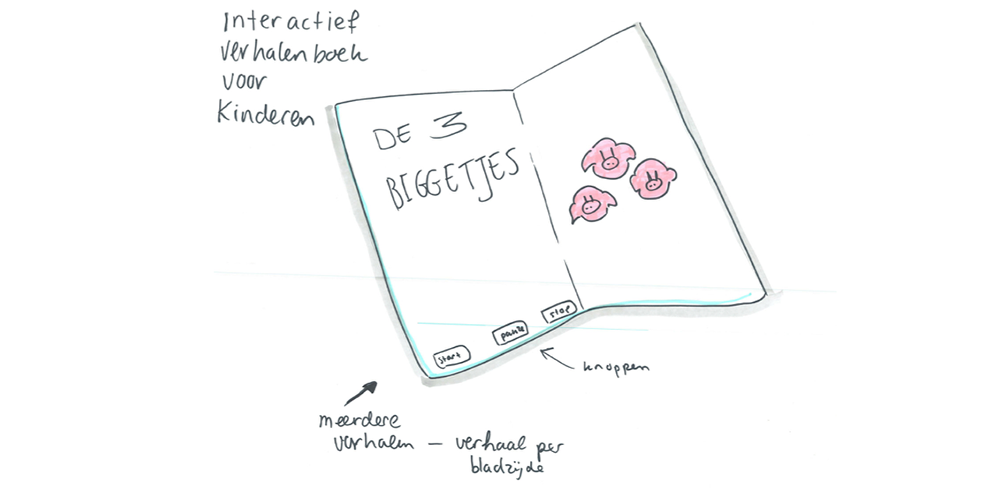 Interactief
verhalen boek
voor
Kinderen
DE 3
BIGGETJES
start
pauze
stop
knoppen
meerdere
verhalen – verhaal per
bladzijde